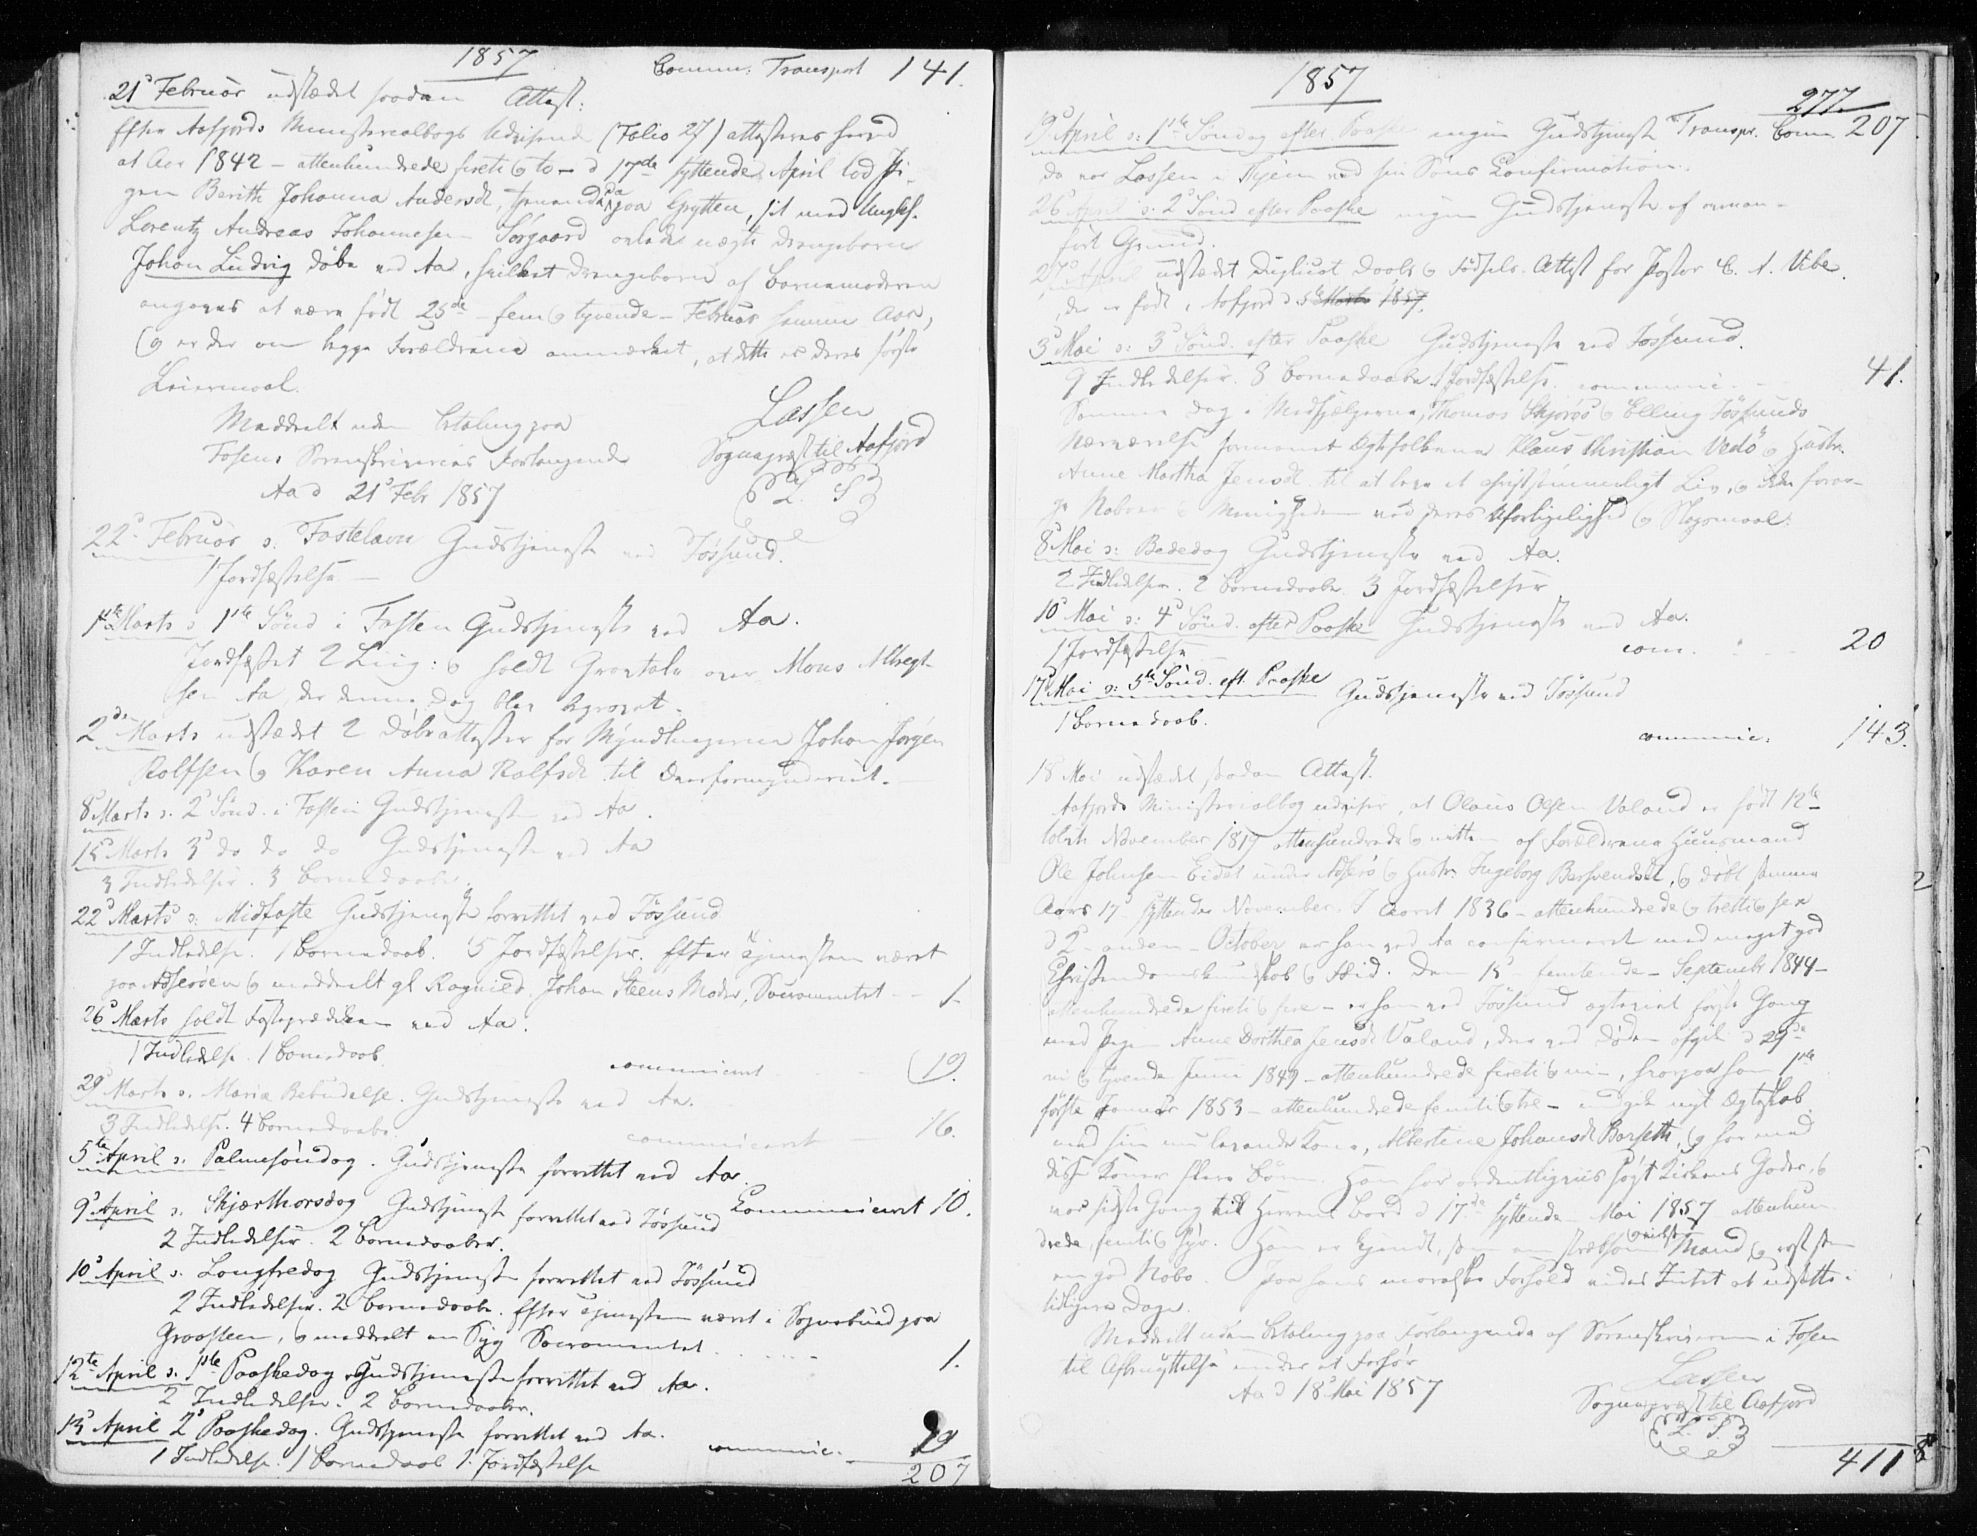 1857
Comm: Transport 141.
21' Februar udstædet saadan Attest:
Efter Aafjords Ministerialbogs Udvisende (Folio 27) attesteres herved
at Aar 1842 – attenhundrede fireti & to – d 17de syttende April lod Pi-
gen Berith Johanna Andersd, tjenende da paa Grytten, sit med Ungkf.
Lorentz Andreas Johannesen Sørgaard avlede uægte Drengebarn
Johan Ludvig døbe ved Aa, hvilket Drengebarn af Barnemoderen
angaves at være født 25de – fem & tyvende – Februar samme Aar,
& er der om begge Forældrene anmærket, at dette er deres første
Leiermaal.
Meddeelt uden Betaling paa
Fosens Sorenskriveries Forlangende
Aa d 21' Febr 1857
Lassen
Sognepræst til Aafjord
L. S.
22' Februar s: Fastelavn Gudstjeneste ved Jøssund.
1 Jordfæstelse –
1ste Marts s. 1ste Sönd i Fasten Gudstjeneste ved Aa.
Jordfæstet 2 Liig: & holdt Gravtale over Mons Albregt-
sen Aa, der denne Dag blev begravet.
2de Marts udstædet 2 Døbeattester for Myndlingerne Johan Jørgen
Rolfsen & Karen Anna Rolfsd til Overformynderiet.
8' Marts s. 2' Sönd. i Fasten Gudstjeneste ved Aa.
15' Marts 3' do do do Gudstjeneste ved Aa
3 Indledelser. 3 Barnedaabe.
22' Marts s: Midfaste Gudstjeneste forrettet ved Jössund
1 Indledelse. 1 Barnedaab. 5 Jordfæstelser. Efter Tjenesten været
paa Adserøen & meddeelt gl. Ragnild Johan Steens Moder, Sacramentet – – 1.
26' Marts holdt Fasteprædiken ved Aa.
1 Indledelse. 1 Barnedaab
communiceret 19.
29' Marts s. Mariæ Bebudelse. Gudstjeneste ved Aa.
3 Indledelse. 4 Barnedaabe.
communiceret 16.
5te April s. Palmesöndag. Gudstjeneste forrettet ved Aa.
9' April s. Skjærthorsdag Gudstjeneste forrettet ved Jössund
Communiceret 10.
2 Indledelser. 2 Barnedaaber.
10' April s. Langfredag Gudstjeneste forrettet ved Jössund
2 Indledelser. 2 Barnedaabe. Efter Tjenesten været i Sognebud paa
Graasteen, & meddeelt en Syg Sacramentet. 1.
12te April s. 1ste Paaskedag Gudstjeneste forrettet ved Aa.
2 Indledelser. 2 Barnedaaber.
13' April 2' Paaskedag. Gudstjeneste forrettet ved Aa.
communic. 19
1 Indledelse. 1 Barnedaab 1. Jordfæstelse
207
1857
277.
19' April s: 1ste Söndag efter Paaske ingen Gudstjeneste Transpr. Comm 207
da var Lassen i Thjem ved sin Søns Confirmation.
26' April s. 2' Sönd efter Paaske ingen Gudstjeneste af oven-
ført Grund.
27' April udstædet Duplicat Daabs & Fødsels-Attest for Pastor C. A. Vibe,
der er født i Aafjord d 5te Marts 1857.
3' Mai s: 3' Sönd. efter Paaske Gudstjeneste ved Jössund.
9 Indledelser. 8 Barnedaabe. 1 Jordfæstelse. communic. 41.
Samme Dag i Medhjælperne, Thomas Skjørøs & Elling Jössunds
Nærværelse formanet Ægtefolkene Klaus Christian Vedö & Hustr.
Anne Martha Jensd. til at leve et christsømmeligt Liv, & ikke forar-
ge Naboer & Menigheden ved deres Uforligelighed & Slagsmaal.
8' Mai s: Bededag Gudstjeneste ved Aa.
2 Indledelser. 2 Barnedaabe. 3 Jordfæstelser
10' Mai s: 4' Sönd. efter Paaske Gudstjeneste ved Aa.
1 Jordfæstelse com. 20
17' Mai s: 5te Sönd. eft. Paaske Gudstjeneste ved Jössund
1 Barnedaab.
communic. 143.
18' Mai udstædet saadan Attest.
Aafjords Ministerialbog udviser, at Olaus Olsen Valand er født 12te
tolvte November 1819 attenhundrede & nitten af Forældrene Huusmand
Ole Johnsen Eidet under Adserö & Hustr. Ingeborg Bersvendsd., & døbt samme
Aars 17' syttende November. I Aaret 1836 – attenhundrede & tretti & sex
d 2' – anden – October er han ved Aa confirmeret med meget god
Christendomskundskab & Flid. Den 15' femtende – Septembr 1844 –
attenhundrede fireti & fire – er han ved Jössund ægteviet første Gang
med Pigen Anne Dorthea Jensd Valand, der ved Døden afgik d 29de
ni & tyvende Juni 1849 – attenhundrede fireti & ni –, hvorpaa han 1ste
første Januar 1853 – attenhundrede femti & tre – indgik nyt Ægteskab
med sin nu levende Kone, Albertine Johansd Borseth, & har med
disse Koner flere Børn. Han har ordentligviis søgt Kirkens Goder, &
var sidste Gang til Herrens Bord d 17de syttende – Mai 1857 attenhun-
drede femti & syv. Han er kjendt, som en stræbsom & vindskibelig Mand, & rost som
en god Nabo. Paa hans moralske Forhold vides Intet at udsætte i
tidligere Dage.
Meddeelt uden Betaling paa Forlangende af Sorenskriveren i Fosen
til Afbenyttelse under et Forhör
Aa d 18' Mai 1857
Lassen
Sognepræst til Aafjord
L. S.
411